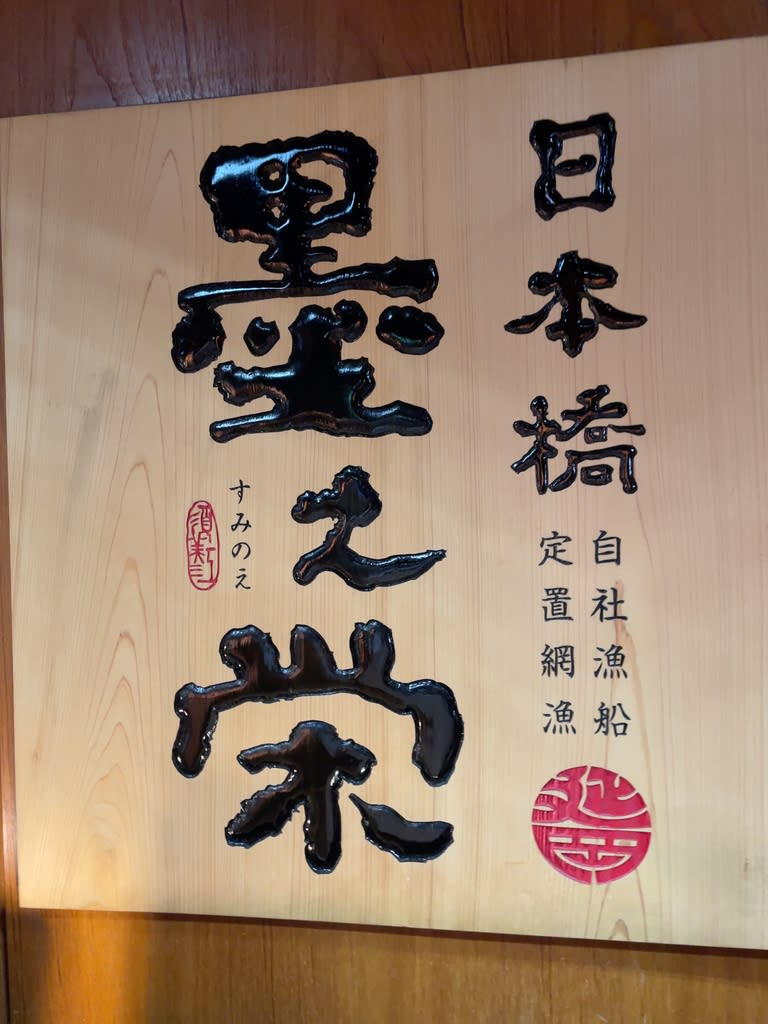 日本橋
自社漁船
定置網漁
墨之栄
すみのえ